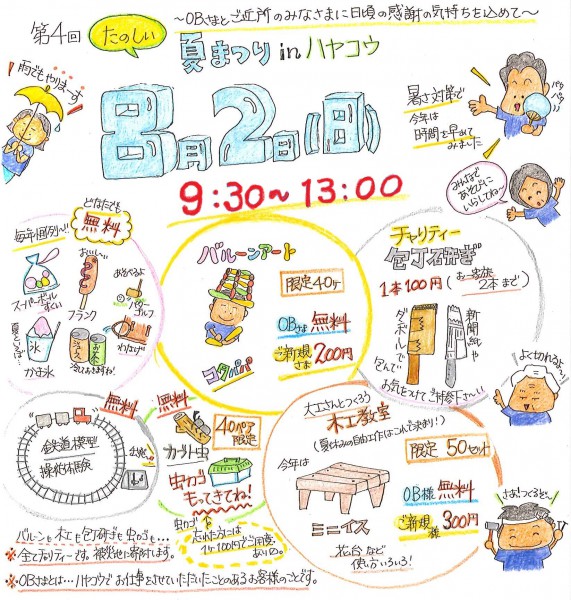 〜OBさまとご近所のみなさまに日頃の感謝の気持ちを込めて〜
第4回
たのしい
夏まつり in ハヤコウ
雨でもやります
8月2日(日)
9:30〜13:00
暑さ対策で
今年は
時間を早めて
みました
パタ
パタ
みんなで
あそびに
いらしてね〜
毎年恒例〜!!
どなたでも
無料
スーパーボール
すくい
おいし〜い
フランク
あそべるよ
パターゴルフ
夏といえば…
氷
かき氷
ジュース
お茶
冷えてますよ!
わたげ
バルーンアート
限定40ヶ
OBさま 無料
ご新規さま 200円
コタパパ
チャリティー
包丁研ぎ
1本100円(お一家族2本まで)
ダンボールで
包んで
新聞紙や
お気をつけてご持参下さ〜い
よく切れるよ〜
無料
鉄道模型
操縦体験
無料
40ペア
限定
カブト虫
虫カゴ
もってきてね!
虫カゴ
忘れた方には
1ヶ100円でご用意
あり〼。
大工さんとつくろう
木工教室
(夏休みの自由工作はこれで決まり!)
限定 50セット
今年は
OB様 無料
ご新規様 300円
ミニイス
花台など
使い方いろいろ!
さぁ!つくるぞ〜
バルーンも木工も包丁研ぎも虫カゴも…
※全てチャリティーです。被災地に寄付します。
※OBさまとは…ハヤコウでお仕事をさせていただいたことのあるお客様のことです。